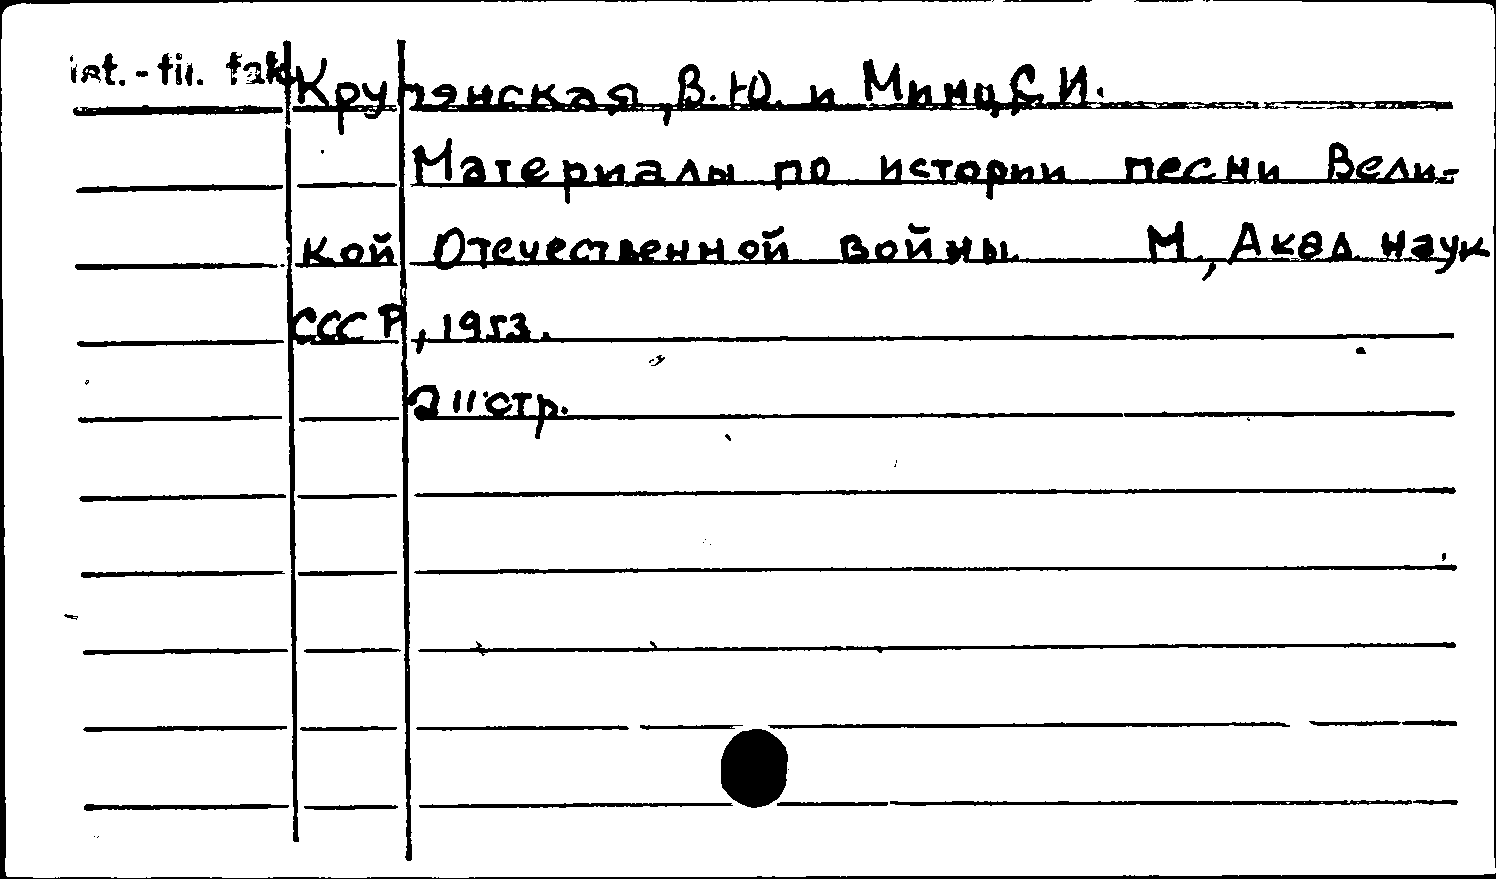 ist.-fil. fak. Крупянская, В.Ю. и Минц, С.И.
Материалы по истории песни Вели-
кой Отечественной войны. М., Акад. наук
СССР, 1953.
211 стр.